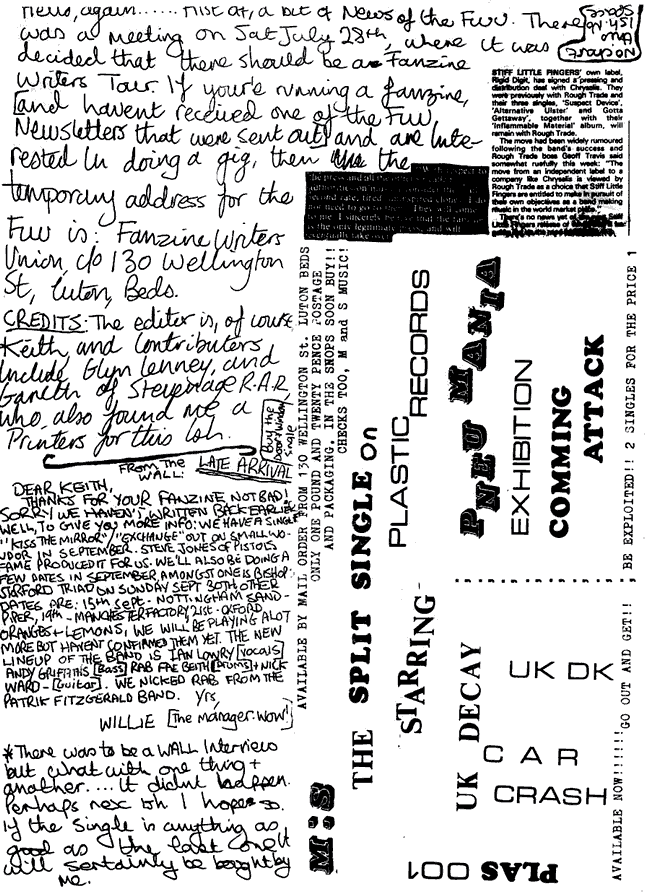 news, again...... First at, a bit of News of the Fwu. There
was a meeting on Sat July 28th, where it was
decided that there should be a Fanzine
Writers Tour. If your'e running a fanzine,
[and havent received one of the Fwu,
Newsletters that were sent out] and are Inte-
rested In doing a gig, then the
temporary address for the
Fwu is: Fanzine Writers
Union, c/o 130 Wellington
St, Luton, Beds.
CREDITS: The editor is, of course
Keith, and Contributers
Include Glyn Lenney, and
Gareth of Stevenage R.A.R,
who also found me a
Printers for this Ish.
Buy the
Door+Window
Single
FROM THE
WALL:
LATE ARRIVAL
DEAR KEITH,
THANKS FOR YOUR FANZINE NOT BAD!
SORRY WE HAVEN'T WRITTEN BACK EARLIER
WELL, TO GIVE YOU MORE INFO: WE HAVE A SINGLE
"KISS THE MIRROR"/"EXCHANGE" OUT ON SMALL WO-
NDOR IN SEPTEMBER. STEVE JONES OF PISTOLS
FAME PRODUCED IT FOR US. WE'LL ALSO BE DOING A
FEW DATES IN SEPTEMBER, AMONGST ONE IS BISHOP-
STORTFORD TRIAD ON SUNDAY SEPT 30TH OTHER
DATES ARE: 15TH SEPT- NOTTINGHAM SAND-
PIPER, 19th - MANCHESTER FACTORY 21st - OXFORD,
ORANGES + LEMONS, WE WILL BE PLAYING ALOT
MORE BUT HAVENT CONFIRMED THEM YET. THE NEW
LINEUP OF THE BAND IS IAN LOWRY [VOCALS]
ANDY GRIFFITHS [Bass] RAB FAE BEITH [DRUMS] + NICK
WARD - [Guitar]. WE NICKED RAB FROM THE
PATRIK FITZGERALD BAND. Yrs,
WILLIE [The manager: wow!]
*There was to be a WALL Interview
but what with one thing +
another.... It didnt happen.
Perhaps next ish I hope so.
If the single is anything as
good as the last one It
will sertainly be bought by
me.
STIFF LITTLE FINGERS' own label,
Rigid Digit, has signed a pressing and
distribution deal with Chrysalis. They
were previously with Rough Trade and
their three singles, 'Suspect Device',
'Alternative Ulster' and 'Gotta
Gettaway', together with their
'Inflammable Material' album, will
remain with Rough Trade.
The move had been widely rumoured
following the band's success and
Rough Trade boss Geoff Travis said
somewhat ruefully this week: "The
move from an independent label to a
company like Chrysalis is viewed by
Rough Trade as a choice that Stiff Little
Fingers are entitled to make in pursuit of
their own objectives as a band making
music in the world market place."
There's no news yet of
AVAILABLE BY MAIL ORDER FROM 130 WELLINGTON St. LUTON BEDS
ONLY ONE POUND AND TWENTY PENCE POSTAGE
AND PACKAGING. IN THE SHOPS SOON BUY!!
CHECKS TOO, M and S MUSIC!
M:S
THE SPLIT SINGLE on
PLASTIC
RECORDS
STARRING-
PNEU MANIA
EXHIBITION
COMMING
ATTACK
UK DECAY
UK DK
CAR
CRASH
AVAILABLE NOW!!!!!!!GO OUT AND GET!! ; ; BE EXPLOITED!! 2 SINGLES FOR THE PRICE 1
PLAS 001